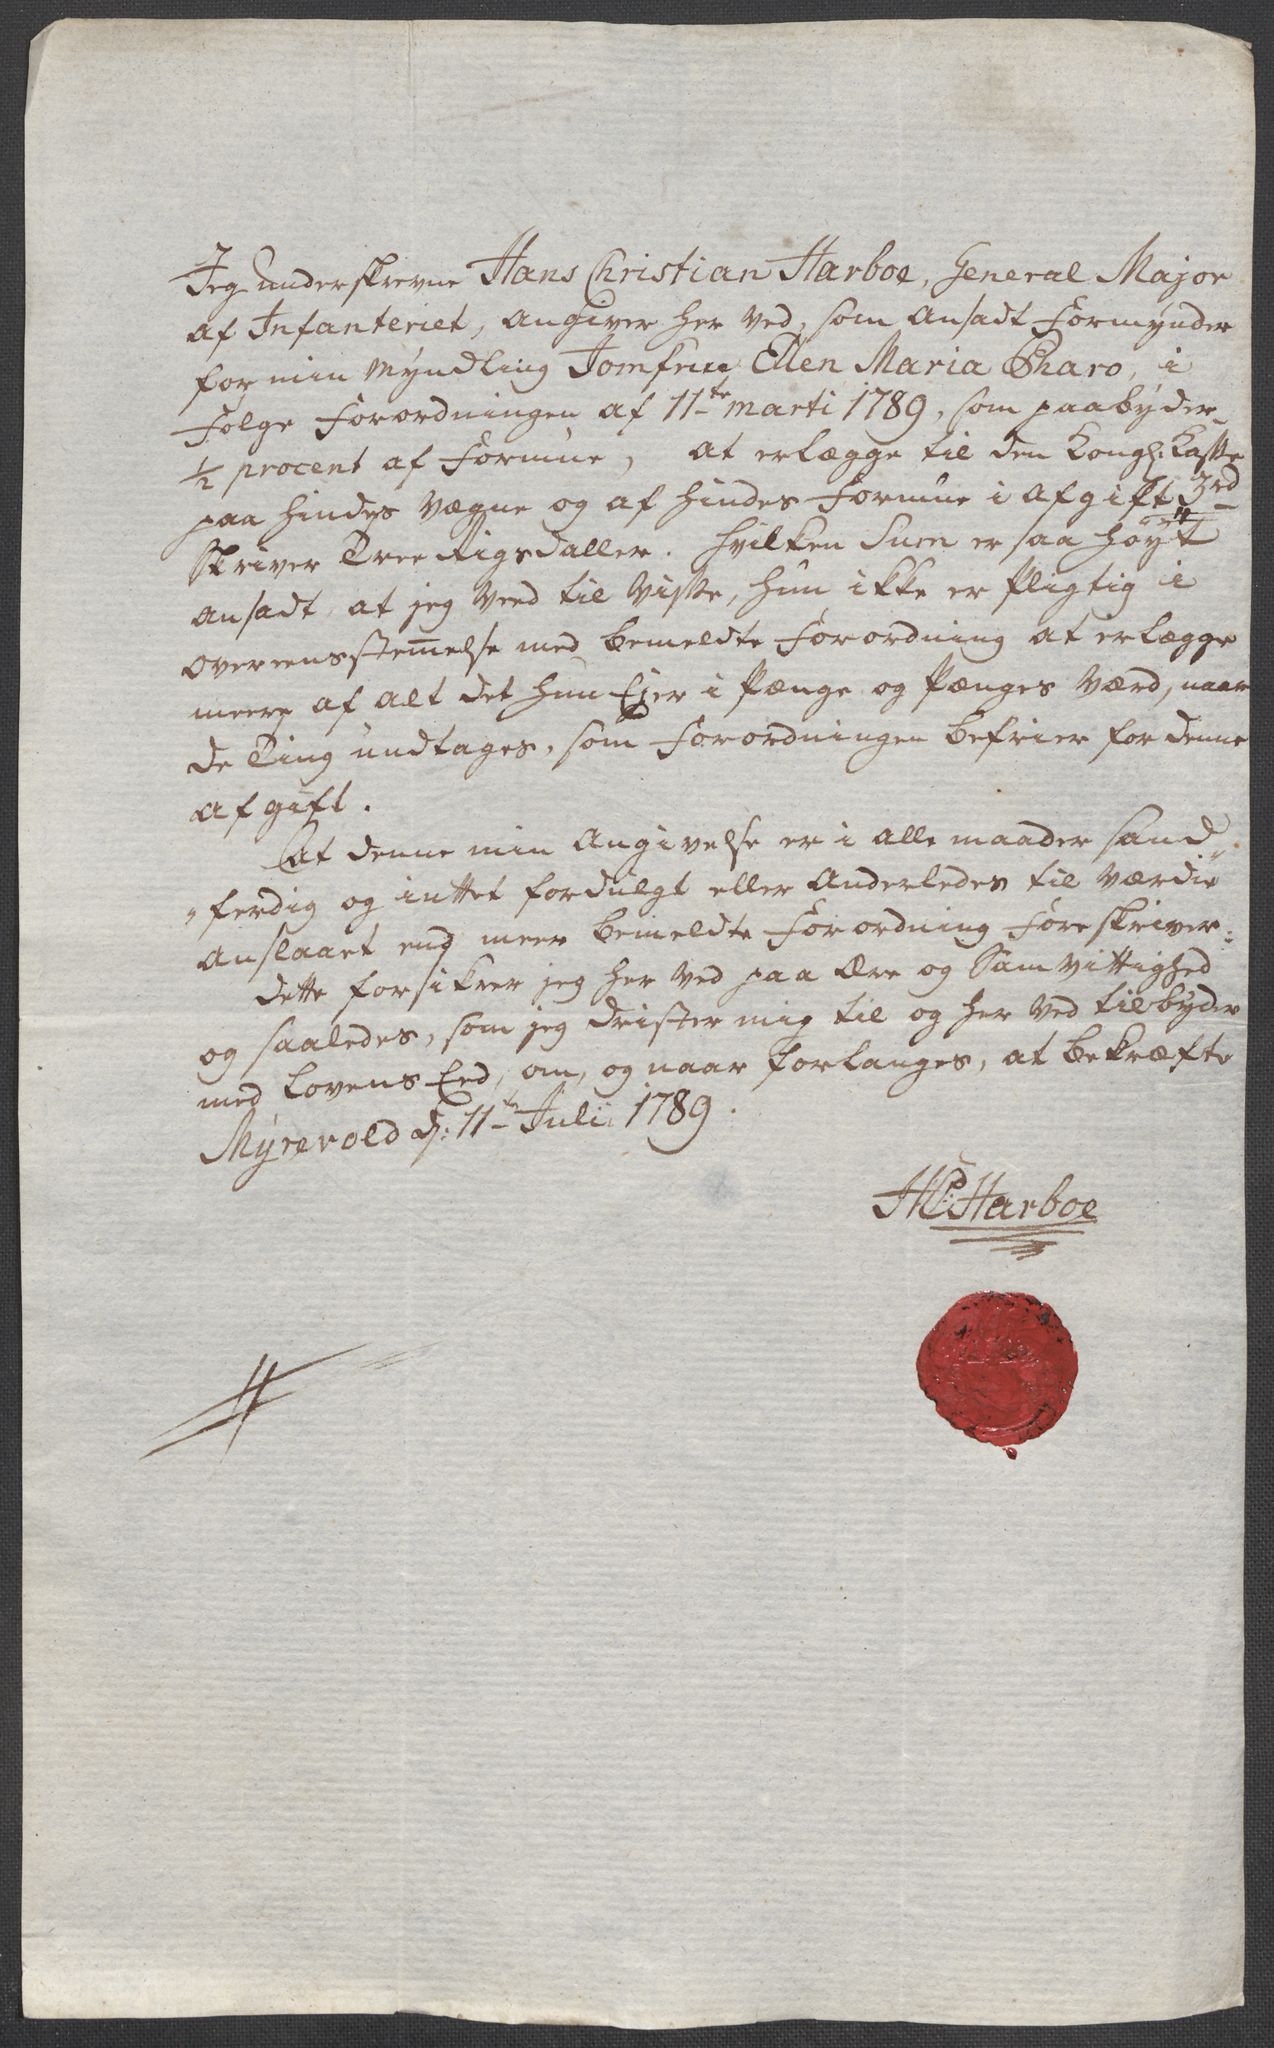 Jeg underskrevne Hans Christian Harboe, General Major
af Infanteriet, angiver her ved, som ansadt Formynder
for min Myndling Jomfrue Ellen Maria Pharo, i
Følge Forordningen af 11te marti 1789, som paabyder
1/2 procent af Formue, at erlægge til den Kongl: Kasse
paa hindes Vægne og af hindes Formue i Afgift 3rd
Skriver Tree Rigsdaller. hvilken Sum er saa høyt
ansadt, at jeg Veed til Visse, hun ikke er Pligtig i
overeensstem̅else med bemeldte Forordning at erlægge
meere af alt det hun Ejer i Pænge og Pænges Værd, naar
de Ting undtages, som Forordningen befrier for denne
afgift.
At denne min Angivelse er i alle maader sand„
„ferdig og intet fordulgt eller Anderledes til Værdie
anslaaet end meer bemeldte Forordning Foreskriver:
dette forsikrer jeg her ved paa Ære og Samvittighed
og saaledes, som jeg drister mig til og her ved tilbyder
med Lovens Eed, om, og naar forlanges, at bekræfte
Myrevold d: 11te Julii 1789.
HC: Harboe